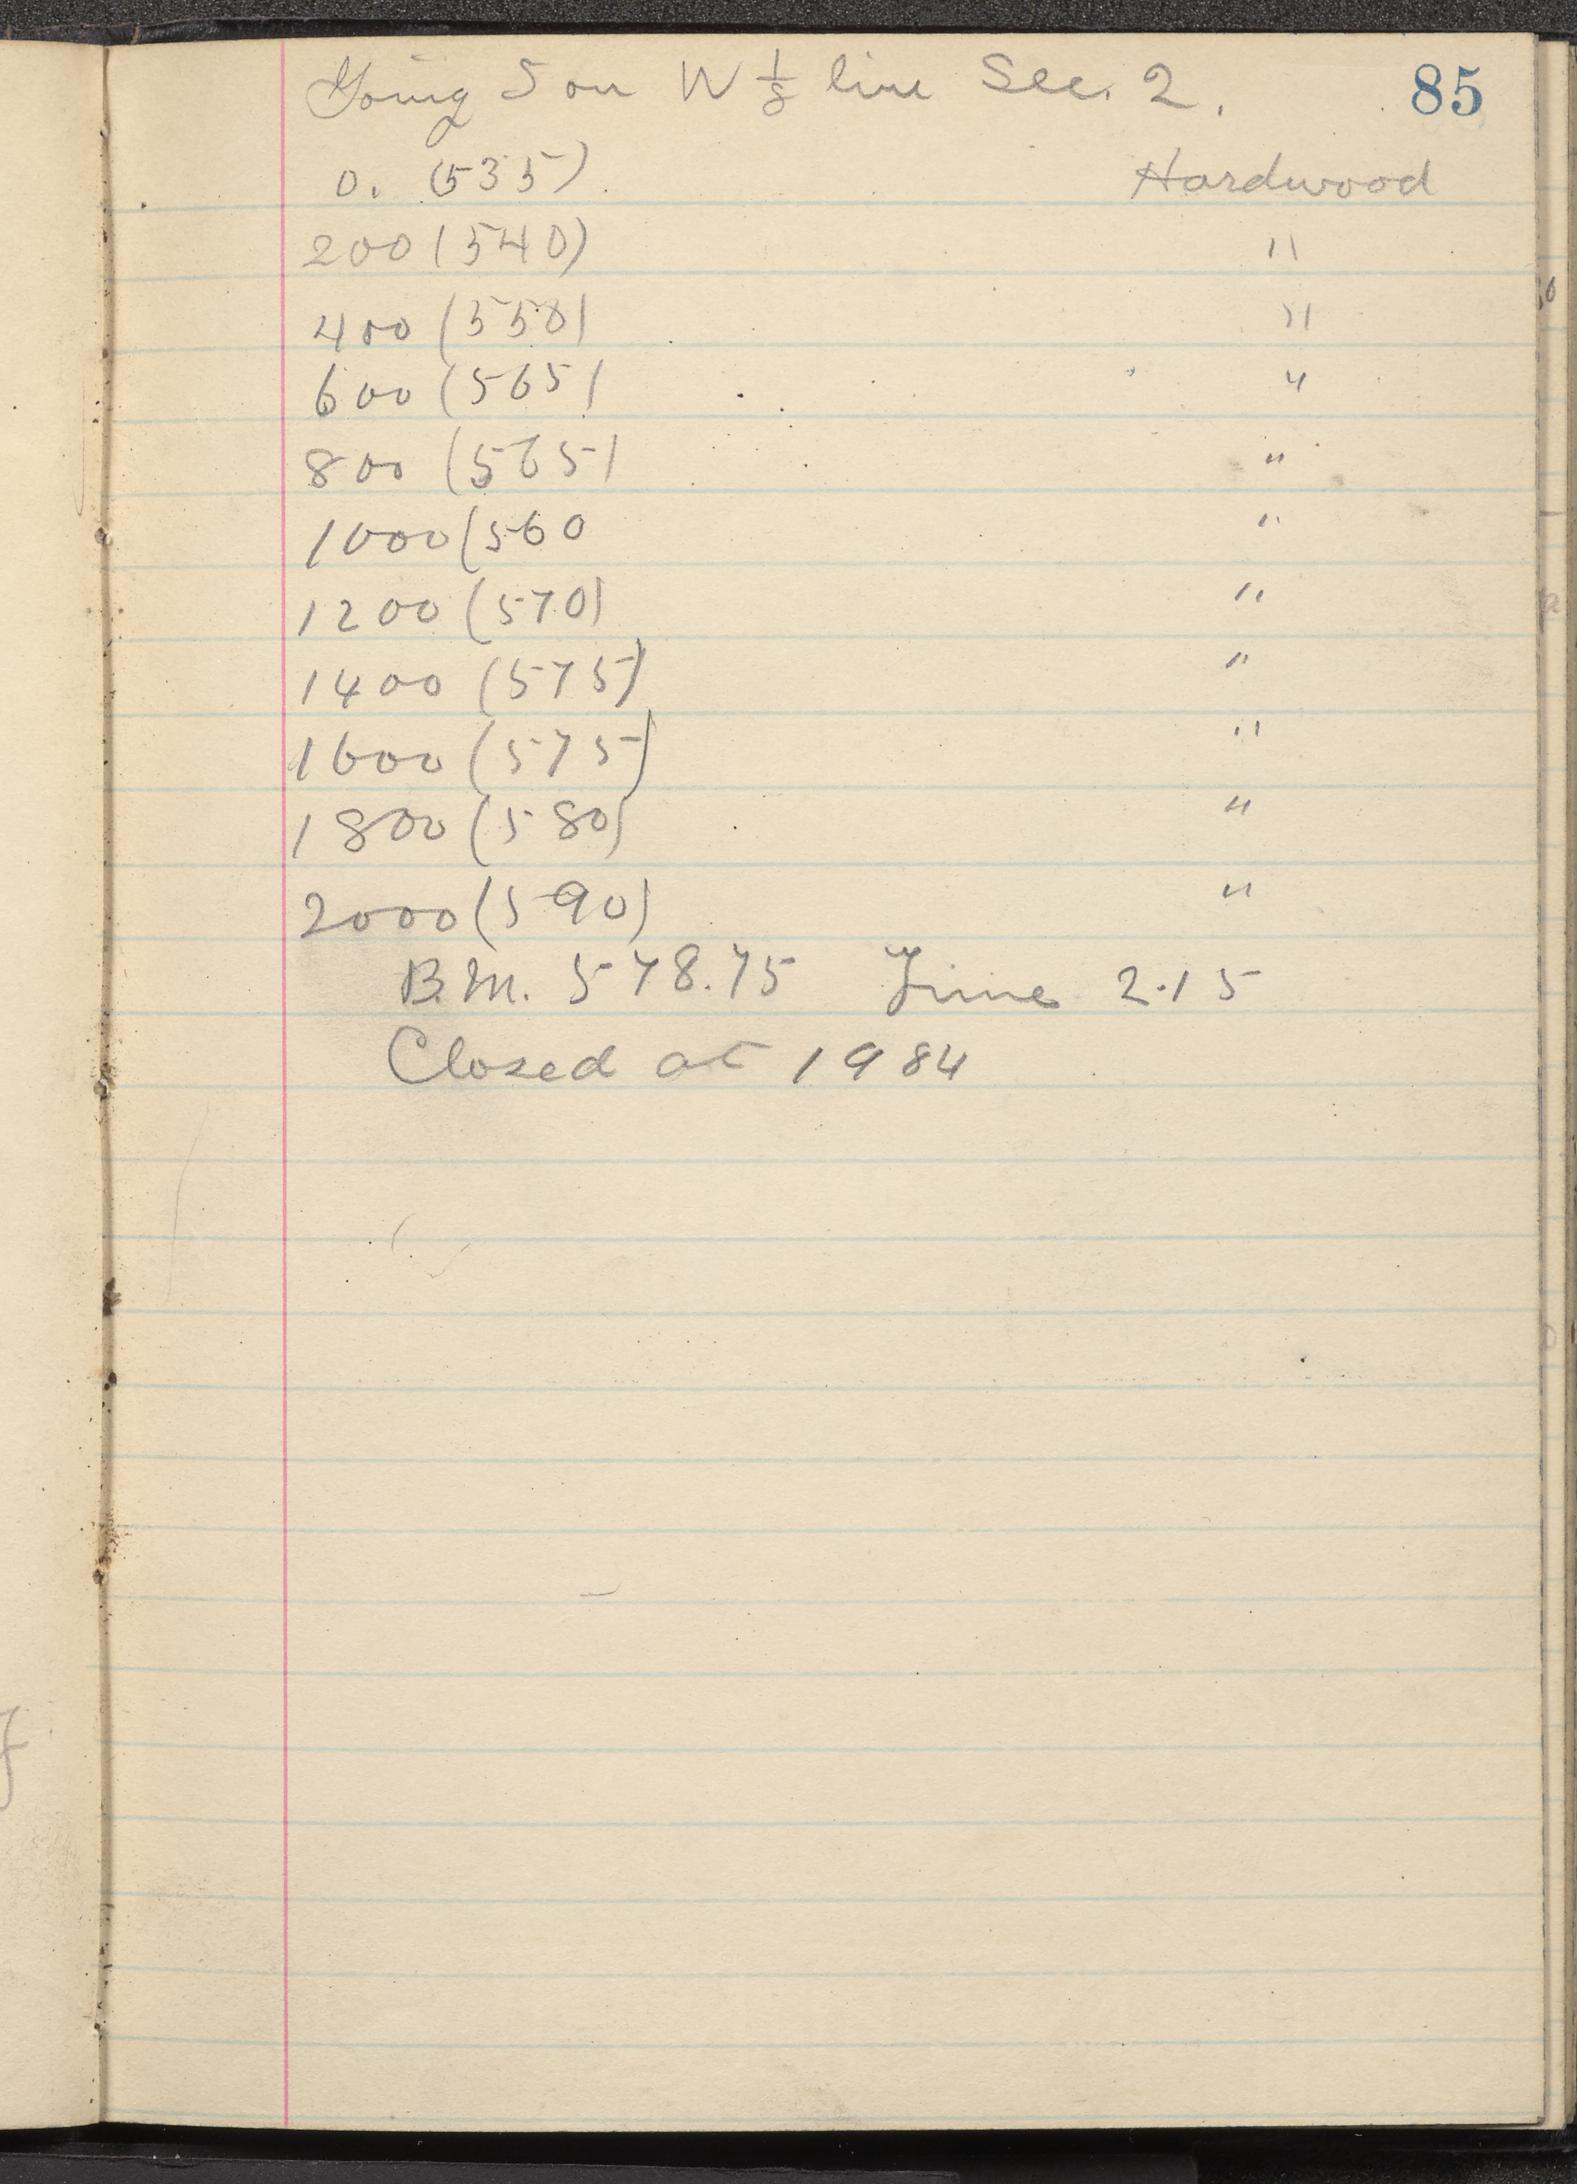 Going S on W 1/8 line Sec. 2. 85
0. (535) Hardwood
200 (540) "
400 (550) "
600 (565) "
800 (565) "
1000 (560 "
1200 (570) "
1400 (575) "
1600 (575) "
1800 (580) "
2000 (590) "
B.M. 578.75 Time 2.15
Closed at 1984